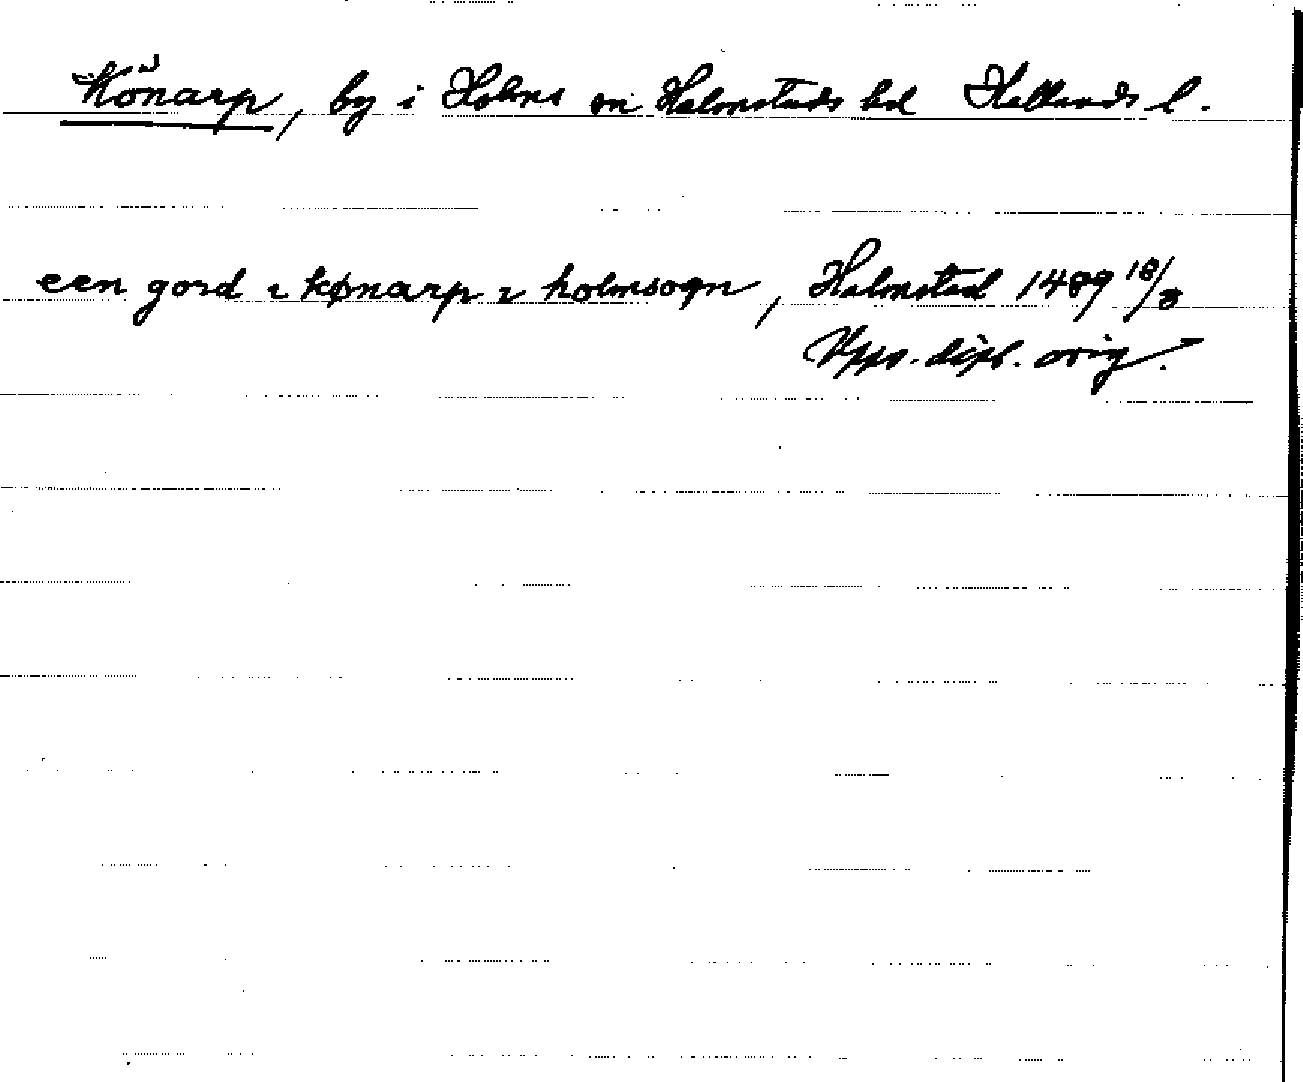 Könarp, by i Holms sn Halmstads hd Hallands l.
een gord i kønarp i holmsogn, Halmstad 1489 18/3
Upps. dipl. orig.